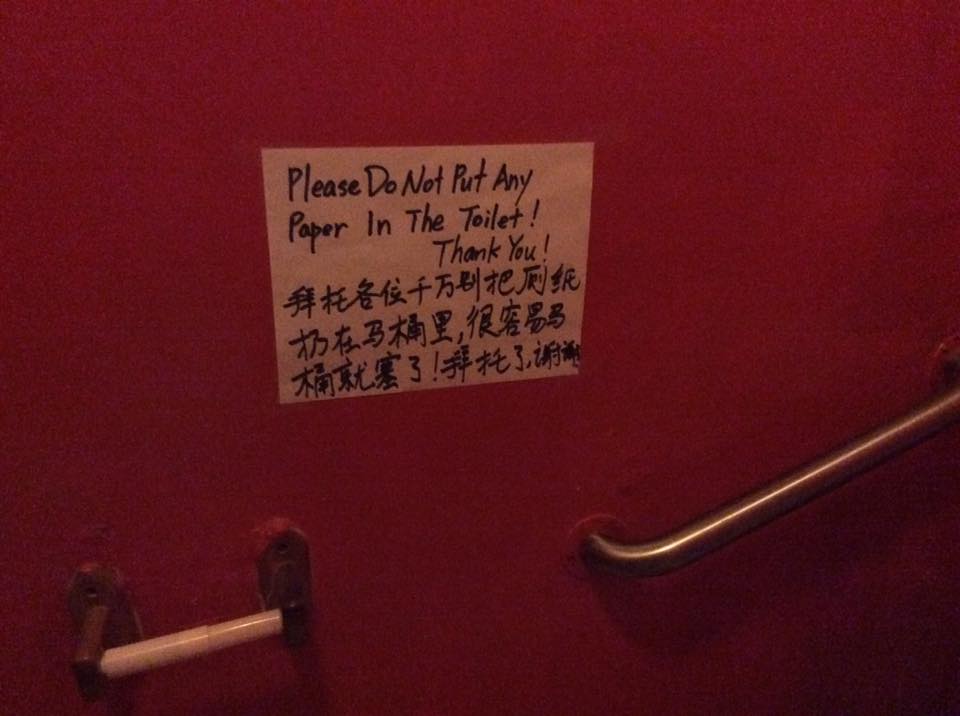 Please Do Not Put Any
Paper In The Toilet!
Thank You!
拜托各位千万别把厕纸
扔在马桶里,很容易马
桶就塞了!拜托了,谢谢